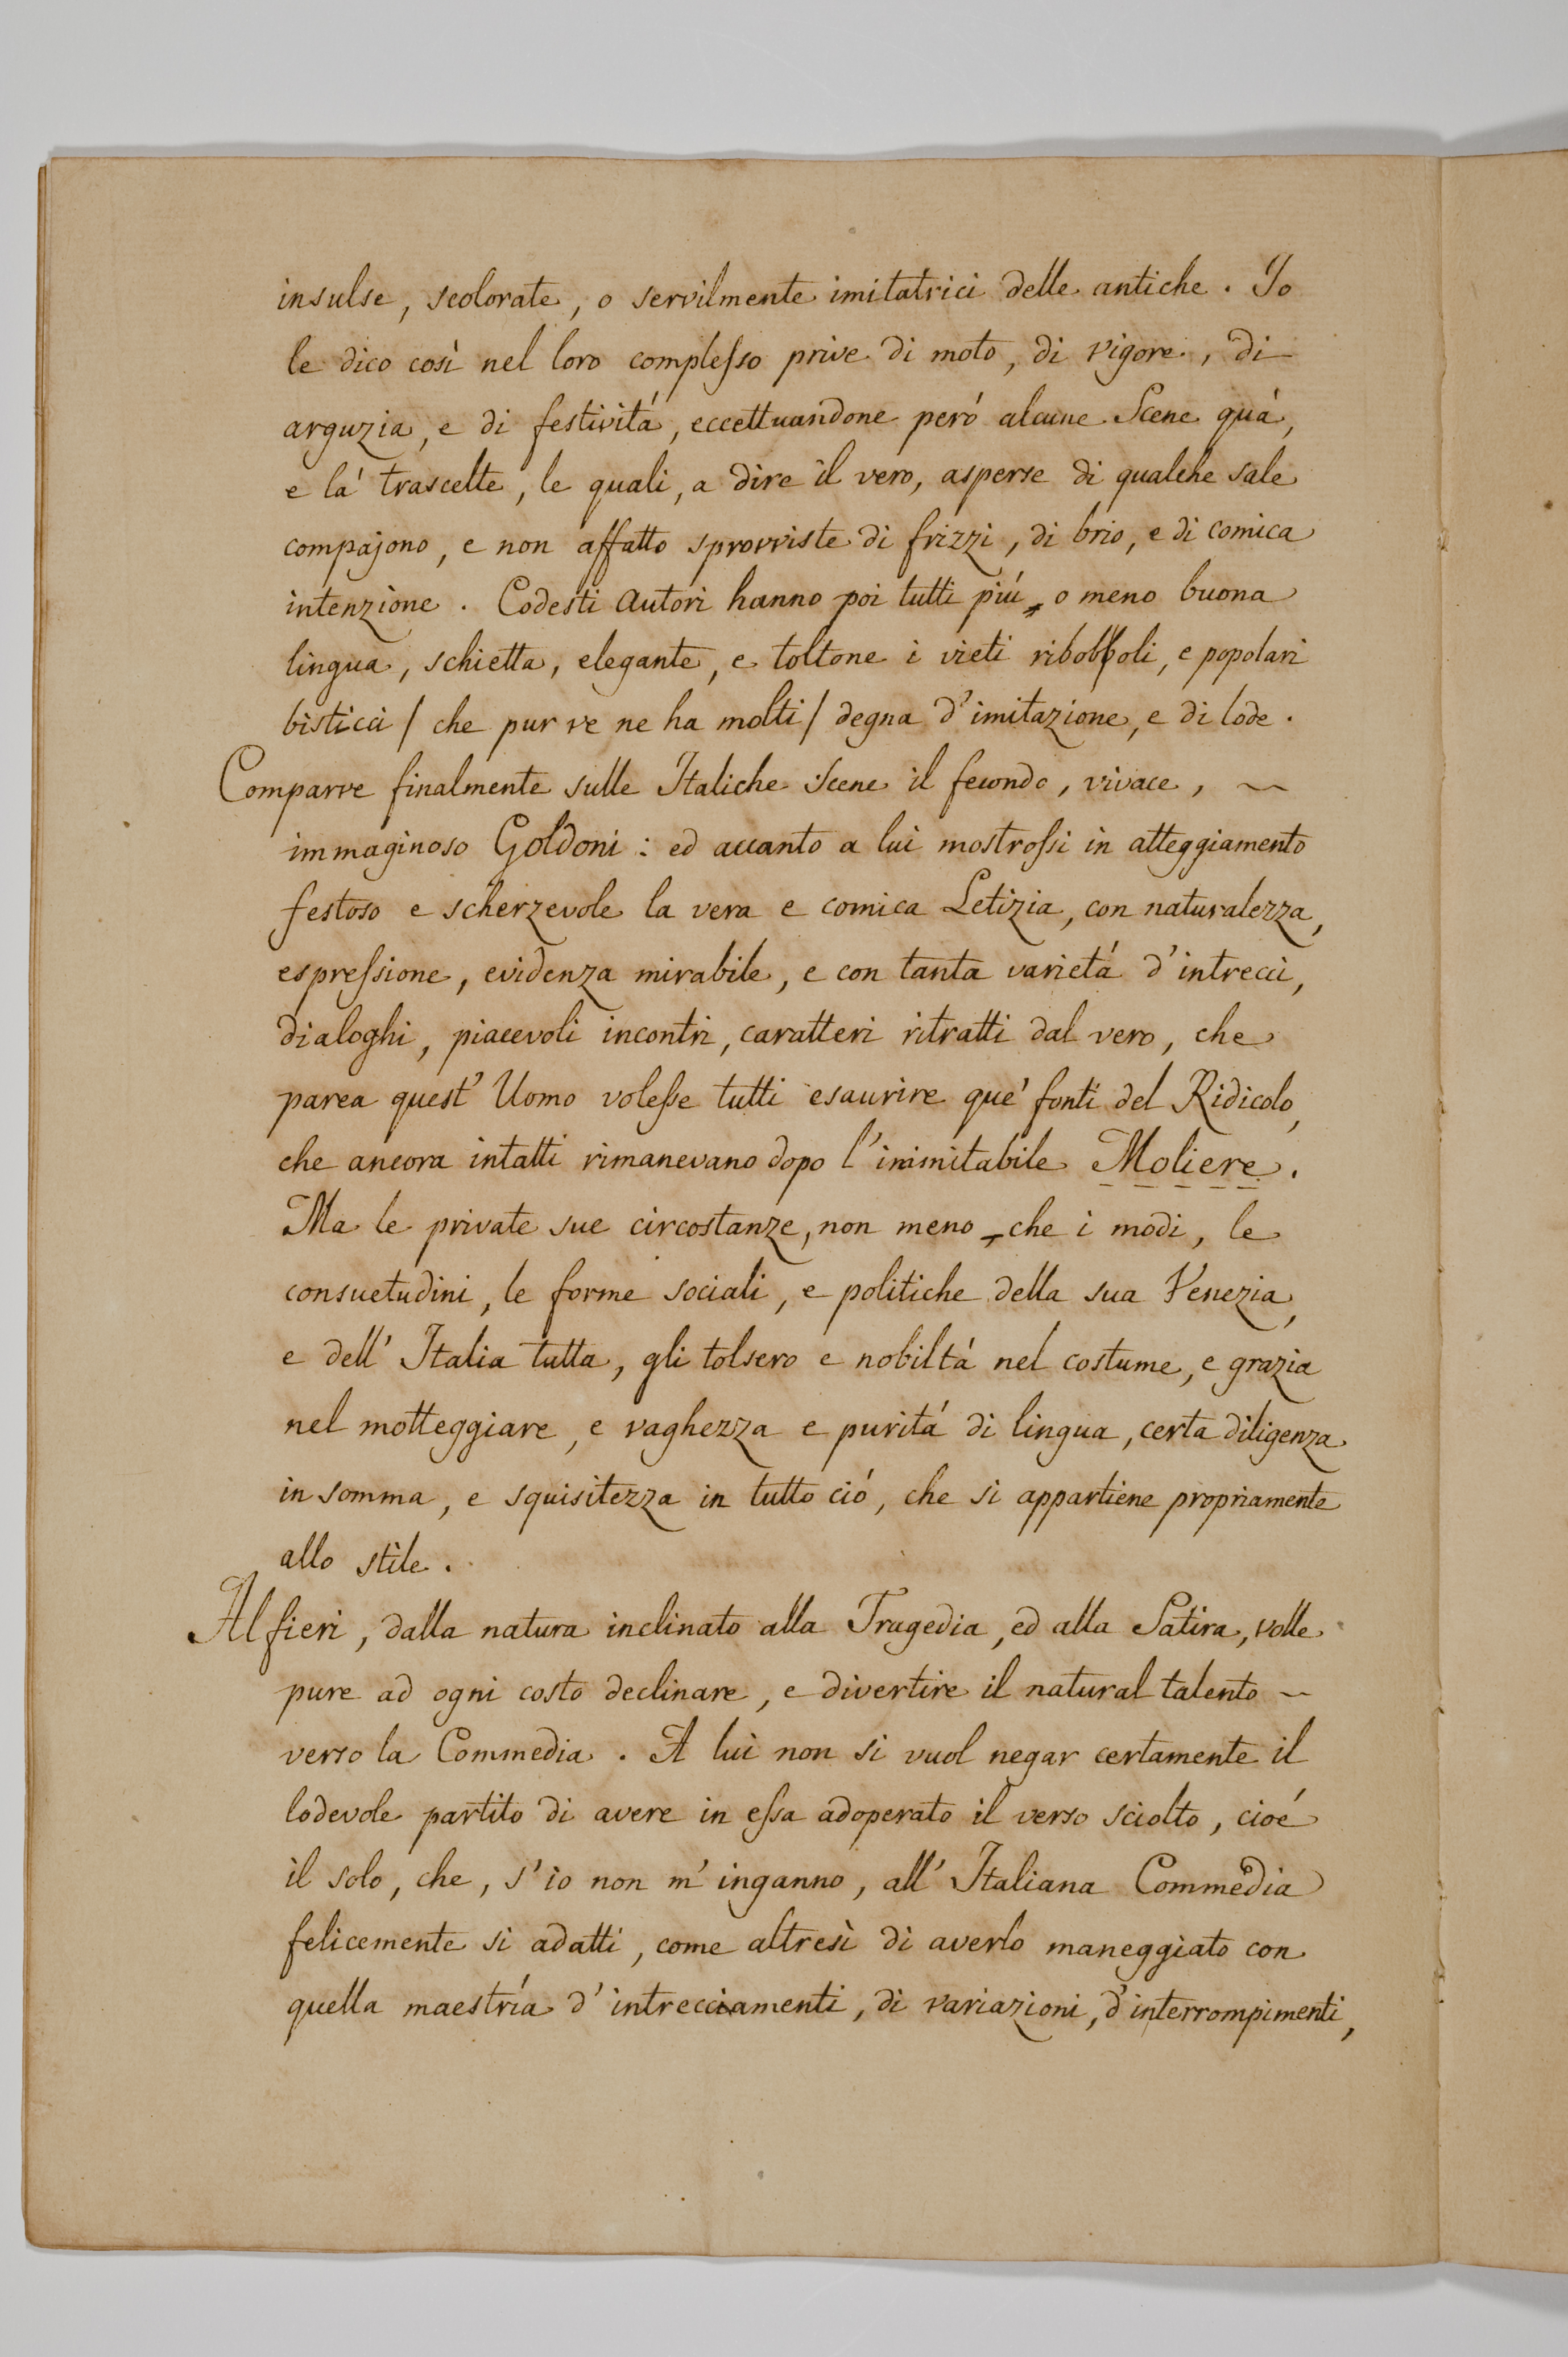 insulse, scolorate, o servilmente imitatrici delle antiche. Io
le dico così nel loro complesso prive di moto, di vigore, di
arguzia, e di festivitá, eccettuandone peró alcune Scene quá,
e lá trascelte, le quali, a dire il vero, asperse di qualche sale
compajono, e non affatto sprovviste di frizzi, di brio, e di comica
intenzione. Codesti Autori hanno poi tutti piú, o meno buona
lingua, schietta, elegante, e toltone i vieti riboboli, e popolari
bisticci / che pur ve ne ha molti / degna d'imitazione, e di lode.
Comparve finalmente sulle Italiche Scene il fecondo, vivace, ~
immaginoso Goldoni: ed accanto a lui mostrossi in atteggiamento
festoso e scherzevole la vera e comica Letizia, con naturalezza,
espressione, evidenza mirabile, e con tanta varietá d'intrecci,
dialoghi, piacevoli incontri, caratteri ritratti dal vero, che
parea quest' Uomo volesse tutti esaurire que' fonti del Ridicolo,
che ancora intatti rimanevano dopo l'inimitabile Moliere.
Ma le private sue circostanze, non meno, che i modi, le
consuetudini, le forme sociali, e politiche della sua Venezia,
e dell' Italia tutta, gli tolsero e nobiltá nel costume, e grazia
nel motteggiare, e vaghezza e puritá di lingua, certa diligenza
in somma, e squisitezza in tutto ció, che si appartiene propriamente
allo stile.
Alfieri, dalla natura inclinato alla Tragedia, ed alla Satira, volle
pure ad ogni costo declinare, e divertire il natural talento ~
verso la Commedia. A lui non si vuol negar certamente il
lodevole partito di avere in essa adoperato il verso sciolto, cioé
il solo, che, s'io non m'inganno, all' Italiana Commedia
felicemente si adatti, come altresì di averlo maneggiato con
quella maestría d'intrecciamenti, di variazioni, d'interrompimenti,